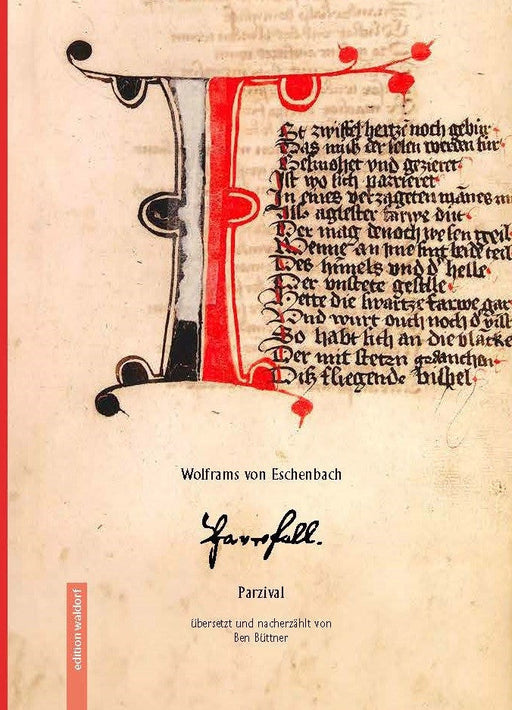 St zwiffel hertzē noch gebur
Das muß der selen werden sur
Gesmohet vnd gezieret
Ist wo sich parrieret
In eines verzageten mānes m
Als aglester farwe dut
Der mag denoch wesen geil
Wenne an ime sint beide teil
Des himels vnd d' helle
Der vnstete geselle
Hette die swartze farwe gar
Vnd wurt ouch noch d'
So habt sich an die blacke
Der mit steten
Diß fliegende bispel
Wolframs von Eschenbach
Parzival
übersetzt und nacherzählt von
Ben Büttner
edition waldorf